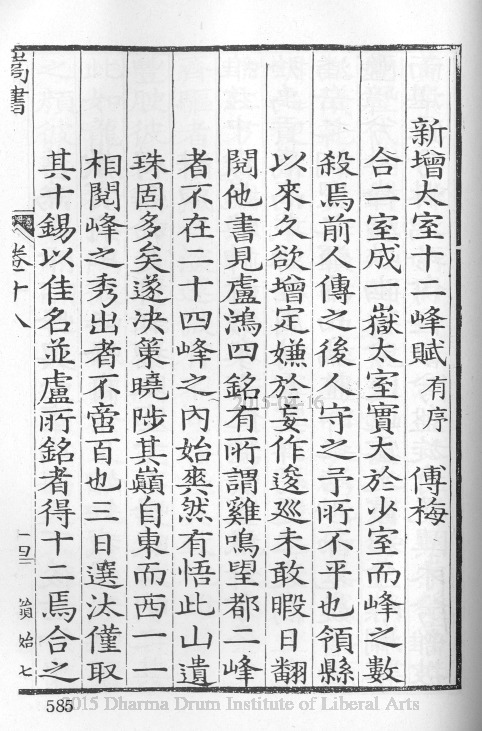 新增太室十二峰賦 有序 傅梅
合二室成一嶽太室實大於少室而峰之數
殺焉前人傳之後人守之予所不平也領縣
以來久欲增定嫌於妄作逡巡未敢暇日翻
閱他書見盧鴻四銘有所謂雞鳴朢都二峰
者不在二十四峰之內始爽然有悟此山遺
珠固多矣遂决策曉陟其巔自東而西一一
相閱峰之秀出者不啻百也三日選汰僅取
其十錫以佳名並盧所銘者得十二焉合之
嵩書
卷十八
一四
翁始七
585
2015-04-16
2015 Dharma Drum Institute of Liberal Arts